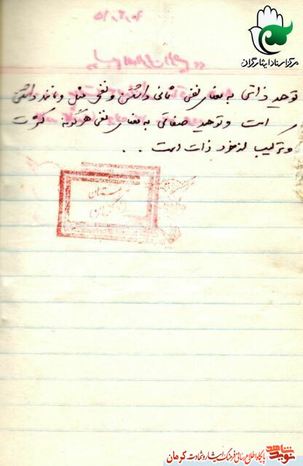 مرکز اسناد ایثارگران
توحید ذاتی به معنای نفی ثانی داشتن و نفی مثل و مانند داشتن
است و توحید صفاتی به معنای نفی هرگونه کثرت
و ترکیب از خود ذات است ..
نوید شاهد
پایگاه اطلاع رسانی فرهنگ ایثار و شهادت کرمان